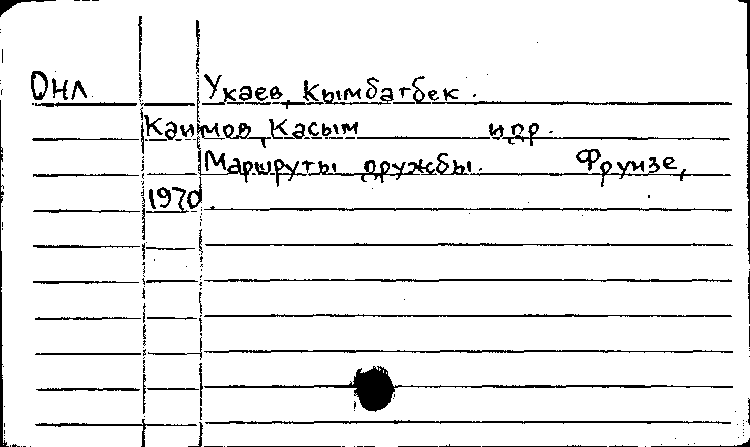 Онл Укаев, Кымбатбек.
Каимов, Касым и др.
Маршруты дружбы. Фрунзе,
1970.